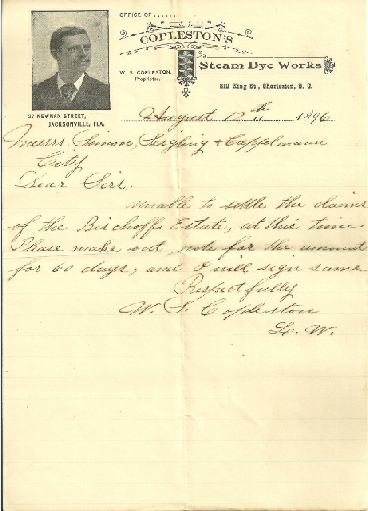 OFFICE OF ......
COPLESTON'S
W. S. COPLESTON,
Proprietor.
Steam Dye Works
King St., Charleston, S. C.
27 NEWNAN STREET,
JACKSONVILLE, FLA.
August 12th 1896
Messrs. Simons, Seigling & Cappelmann
City
Dear Sirs.
unable to settle the claims
of the Bischoffs Estate, at this time.
Please make out note for the amount
for 60 days, and I will sign same
Respectfully
W. S. Copleston